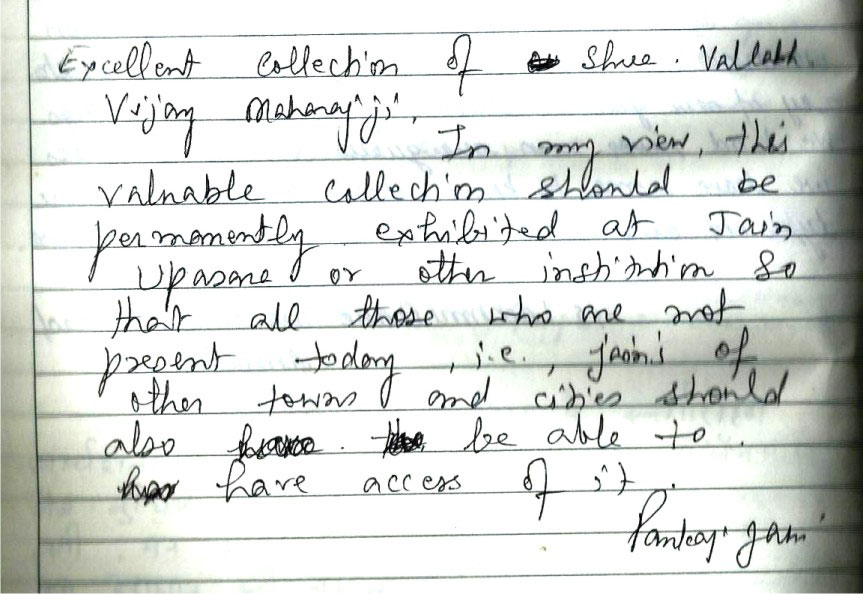 Excellent collection of Shree. Vallabh
Vijay Maharaj ji.
In my view, this
valuable collection should be
permanently exhibited at Jain
Upasane or other institution so
that all those who are not
present today, i.e., jains of
other towns and cities should
also be able to.
have access of it.
Pankaj Jain